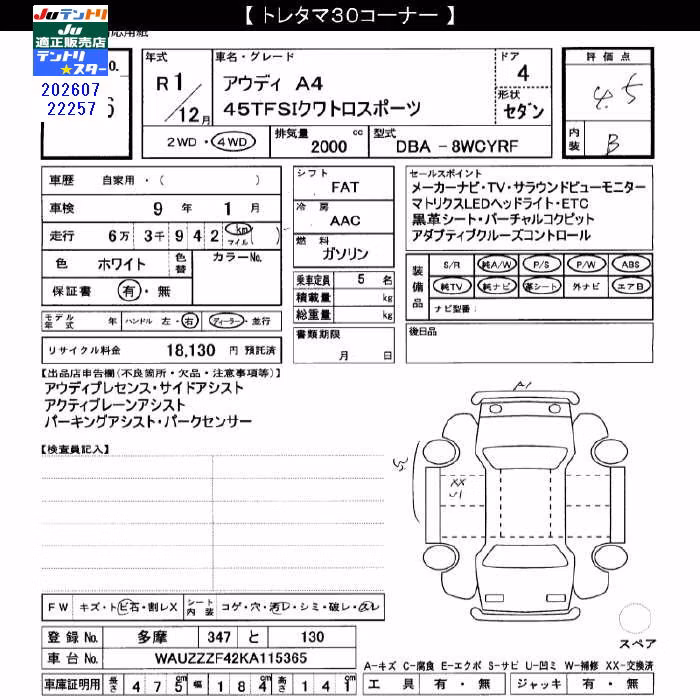 【 トレタマ30コーナー 】
Juテントリ
Ju
適正販売店
テントリ
★スター
202607
22257
年式
R 1 / 12月
車名・グレード
アウディ A4
45TFSIクワトロスポーツ
ドア
4
形状
セダン
評価点
4.5
内装
B
2WD ・ 4WD
排気量 2000 cc
型式 DBA - 8WCYRF
車歴 自家用・( )
車検 9 年 1 月
走行 6万 3千 9 4 2 km マイル ( )
色 ホワイト 色替 カラーNo.
保証書 有・無
モデル年式 年 ハンドル 左・右 ディーラー・並行
リサイクル料金 18,130 円 預託済
シフト
FAT
冷房
AAC
燃料
ガソリン
乗車定員 5 名
積載量 kg
総重量 kg
書類期限
月 日
セールスポイント
メーカーナビ・TV・サラウンドビューモニター
マトリクスLEDヘッドライト・ETC
黒革シート・バーチャルコクピット
アダプティブクルーズコントロール
装備品
S/R 純A/W P/S P/W ABS
純TV 純ナビ 革シート 外ナビ エアB
ナビ型番:
後日品
【出品店申告欄(不良箇所・欠品・注意事項等)】
アウディプレセンス・サイドアシスト
アクティブレーンアシスト
パーキングアシスト・パークセンサー
【検査員記入】
A1
XX
U1
FW キズ・トビ石・割レX シート内装 コゲ・穴・汚レ・シミ・破レ・スレ
登録No. 多摩 347 と 130
車台No. WAUZZZF42KA115365
車庫証明用 長さ 4 7 5 cm 幅 1 8 4 cm 高さ 1 4 1 cm
スペア
A-キズ C-腐食 E-エクボ S-サビ U-凹ミ W-補修 XX-交換済
工具 有・無 ジャッキ 有・無